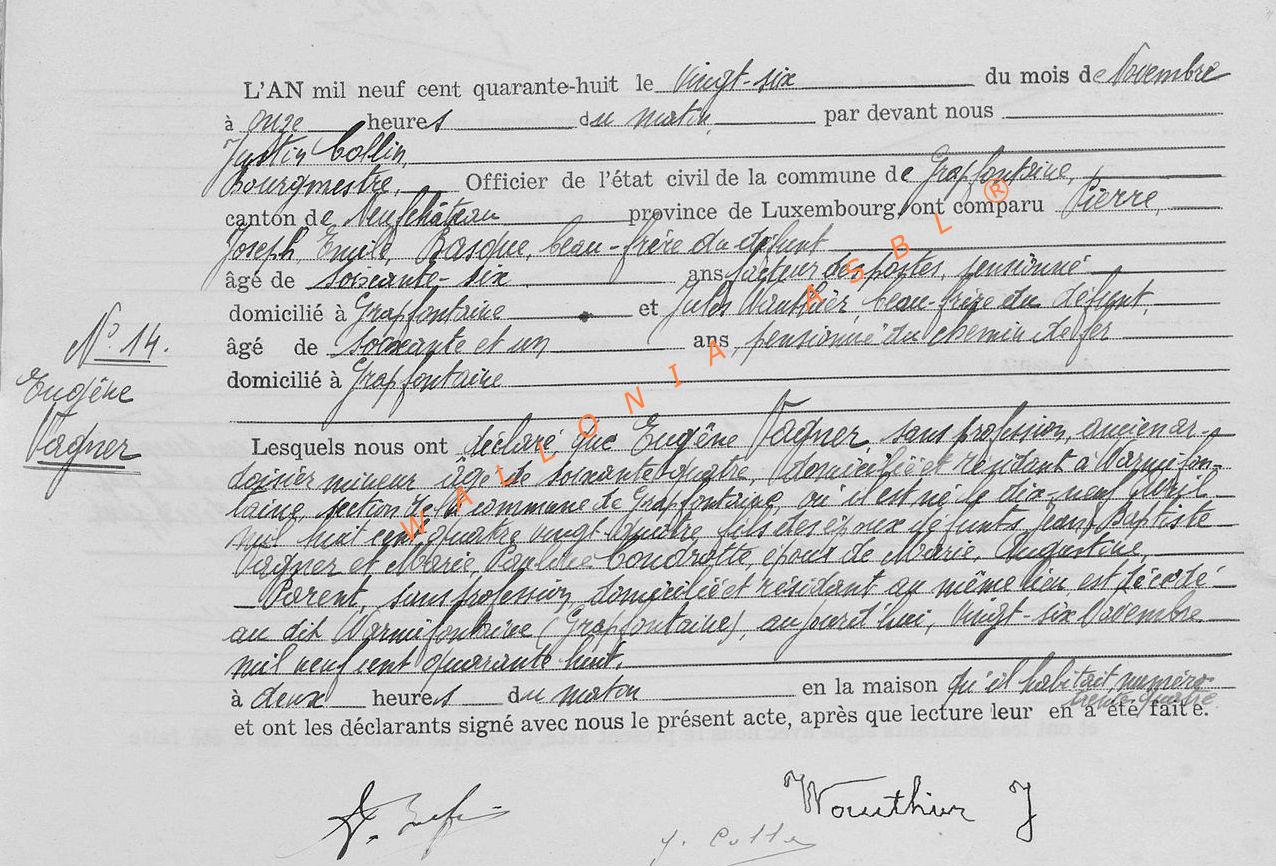 L'AN mil neuf cent quarante-huit le vingt-six du mois de Novembre
à onze heures du matin, par devant nous
Justin Collin,
Bourgmestre, Officier de l'état civil de la commune de Grapfontaine,
canton de Neufchâteau province de Luxembourg, ont comparu Pierre,
Joseph, Emile, Basque, beau-frère du défunt,
âgé de soixante-six ans facteur des postes, pensionné
domicilié à Grapfontaine et Jules Wauthier, beau-frère du défunt,
N° 14.
âgé de soixante et un ans, pensionné du chemin de fer
Eugène
domicilié à Grapfontaine
Vagner
Lesquels nous ont déclaré que Eugène Vagner, sans profession, ancien ar-
doisier mineur âgé de soixante-quatre, domicilié et résidant à Warmifon-
taine, section de la commune de Grapfontaine, où il est né le dix-neuf avril
mil huit cent quatre vingt quatre, fils des époux défunts Jean, Baptiste
Vagner et Marie, Pauline Condrotte, époux de Marie, Augustine,
Parent, sans profession, domiciliée et résidant au même lieu, est décédé
au dit Warmifontaine (Grapfontaine), aujourd'hui, vingt-six Novembre
mil neuf cent quarante huit.
à deux heures du matin en la maison qu'il habitait, numéro
trente-quatre
et ont les déclarants signé avec nous le présent acte, après que lecture leur en a été faite.
Wauthier J
J. Collin
WALLONIA ASBL ®